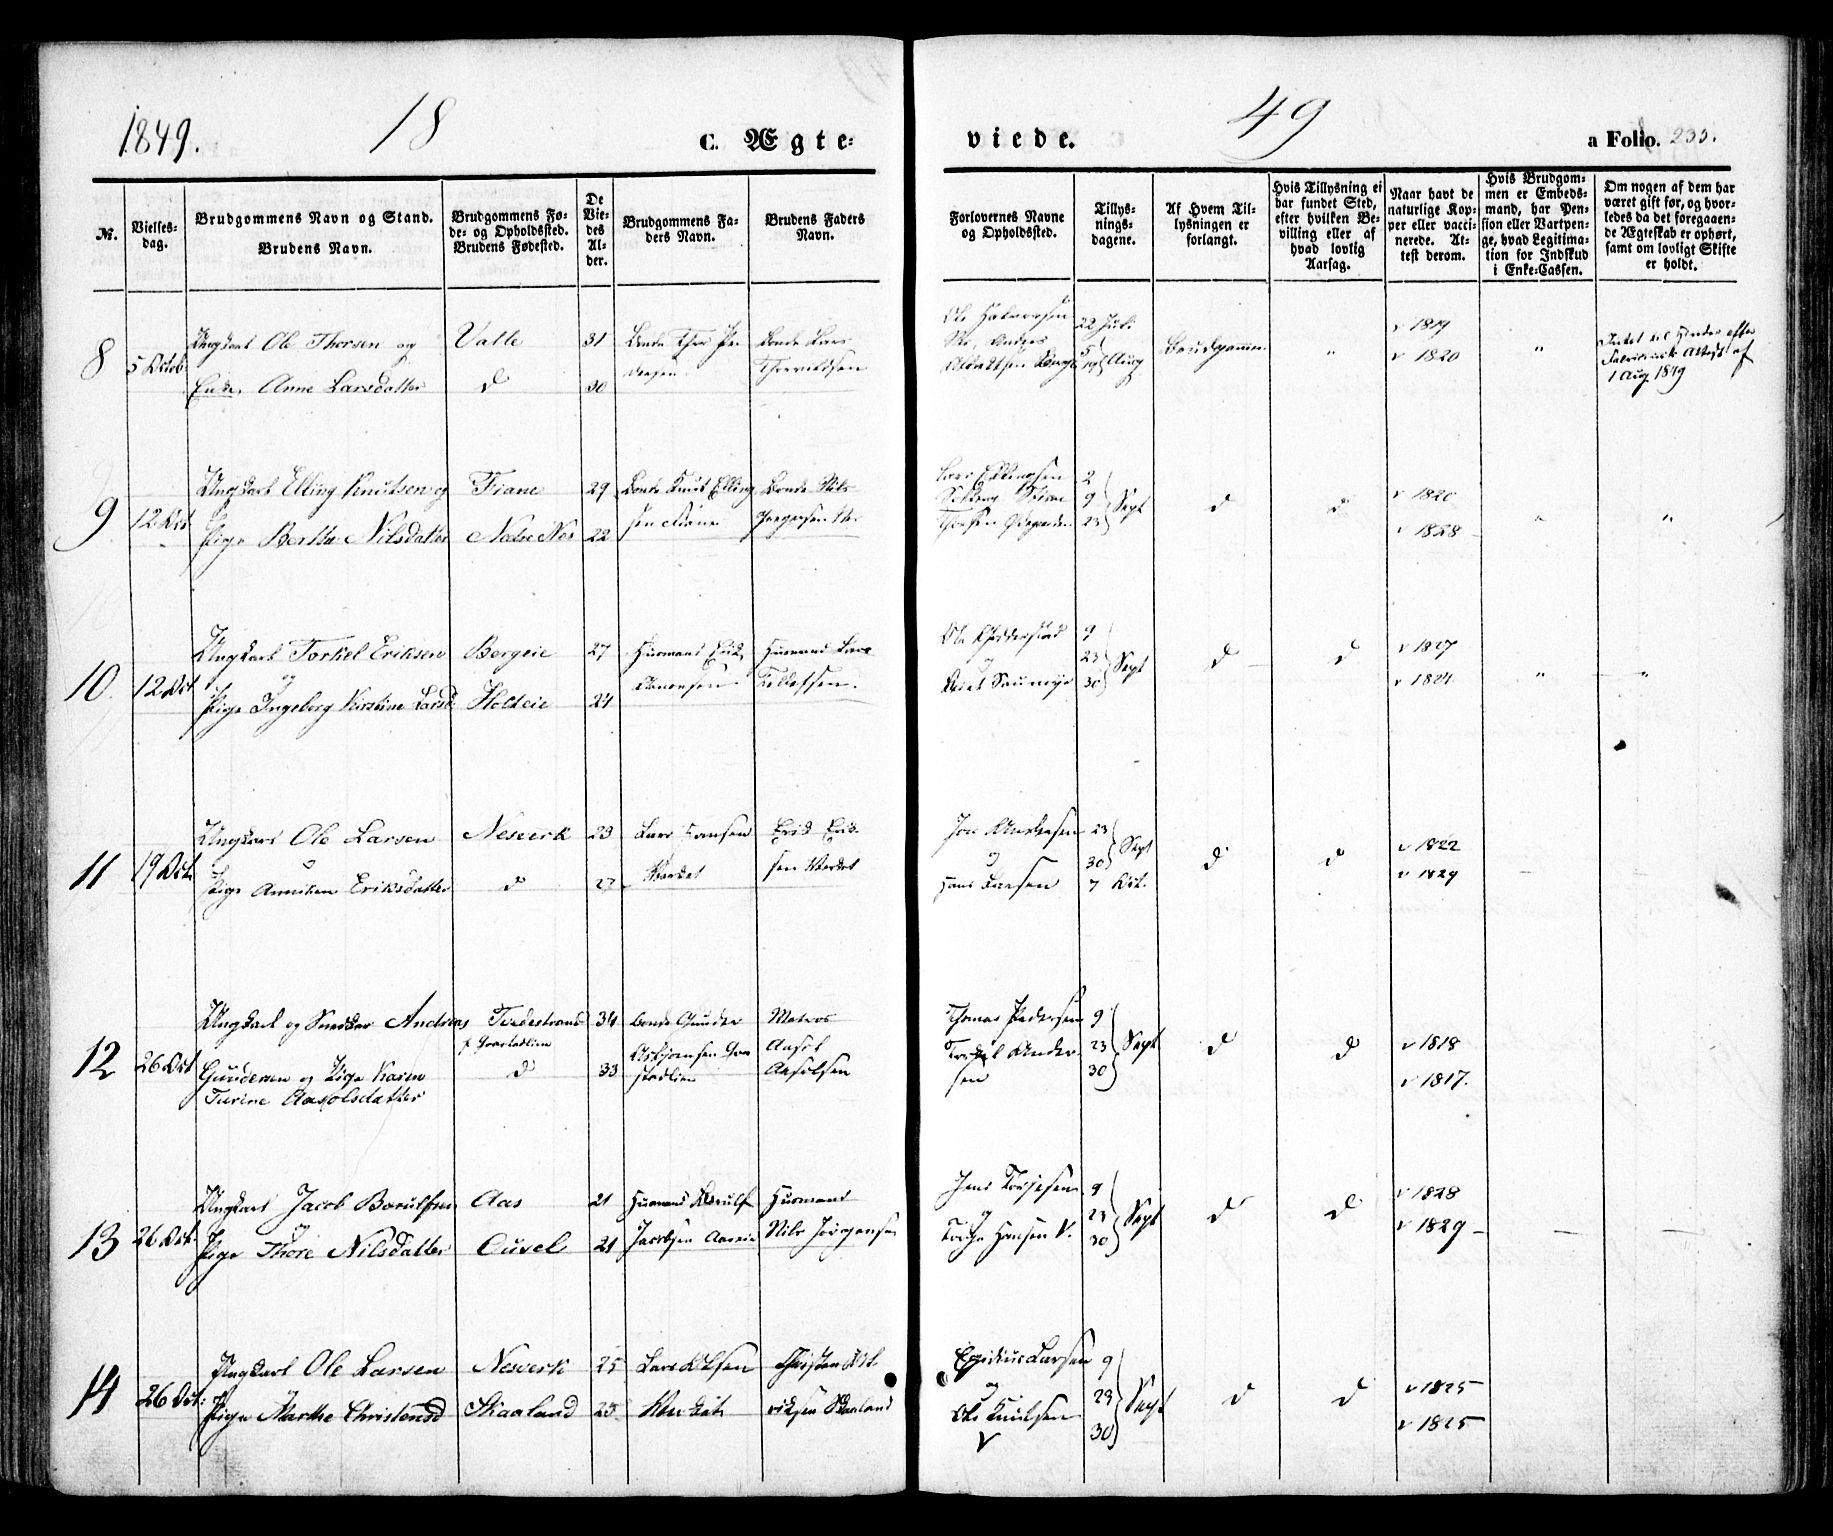 1849. 18 C. Ægte-
viede. 49 a Folio. 233.
No.
Vielses-
dag.
Brudgommens Navn og Stand.
Brudens Navn.
Brudgommens Fø-
de- og Opholdssted.
Brudens Fødested.
De
Vie-
des
Al-
der.
Brudgommens Fa-
ders Navn.
Brudens Faders
Navn.
Forlovernes Navne
og Opholdssted.
Tillys-
nings-
dagene.
Af Hvem Til-
lysningen er
forlangt.
Hvis Tillysning ei
har fundet Sted,
efter hvilken Be-
villing eller af
hvad lovlig
Aarsag.
Naar havt de
naturlige Kop-
per eller vacci-
nerede. At-
test derom.
Hvis Brudgom-
men er Embeds-
mand, har Pen-
sion eller Vartpen-
ge, hvad Legitima-
tion for Indskud
i Enke-Cassen.
Om nogen af dem har
været gift før, og hvor-
ledes da det foregaaen-
de Ægteskab er ophørt,
samt om lovligt Skifte
er holdt.
8 5 Octob:
Ungkarl Ole Thorsen og
Enke, Anne Larsdatter
Valle
d
31
30
Bonde Thor
Bonde Lars
Ole Halvorsen
22 Juli
5
19 Aug
Brudgommen
"
v 1819
v 1820
"
Intet til Hinder efter
Attest af
1 Aug 1849
9 12 Oct
Ungkarl Elling Knutsen og
Pige Berthe Nilsdatter
Fiane
Nedre Nes
29
22
Bonde Knut Elling
sen Fiane
Bonde Nils
Lars Ellingsen
2
9
23 Sept
d
d
v 1820
v 1828
"
"
10. 12 Oct
Ungkarl Torkel Eriksen
og
Pige Ingeborg Kirstine Larsd
Bergeie
Holteie
27
24
Huusmand Erik
Huusmand Lars
Ole
og
9
23
30 Sept
d
d
v 1827
v 1824
"
"
11 19 Oct
Ungkarl Ole Larsen
og
Pige Anniken Eriksdatter
Nesverk
d
23
27
Lars Hansen
Værket
Erik Erik
sen Værket
Jon Andersen
og
Hans Larsen
23
30 Sept
7 Oct.
d
d
v 1822
v 1829
12 26 Oct
Ungkarl og Snedker Andreas
Gundersen og Pige Karen
Turine Aasolsdatter
Tvedestrand
d
34
33
Bonde Gunder
Asbjørnsen
Matros
Aasol
Aasolsen
Thomas Pedersen
Torkel Ander-
sen
9
23
30 Sept
d
d
v 1818
v 1817.
13 26 Oct.
Ungkarl Jacob Borulfsen
og
Pige Thore Nilsdatter
Aas
Ouvel
21
21
Huusmand Borulf
Jacobsen Aaseie
Huusmand
Nils Jørgensen
Jens Terjesen
og
Terje Hansen V.
9
23
30 Sept
d
d
v 1828
v 1829
14 26 Oct:
Ungkarl Ole Larsen
Pige Marthe Christensd
Nesverk
Skaaland
25
25
Lars Olsen
Christen
Skaaland
Egidius Larsen
og
Ole Knutsen
V
9
23
30 Sept
d
d
v 1825
v 1825